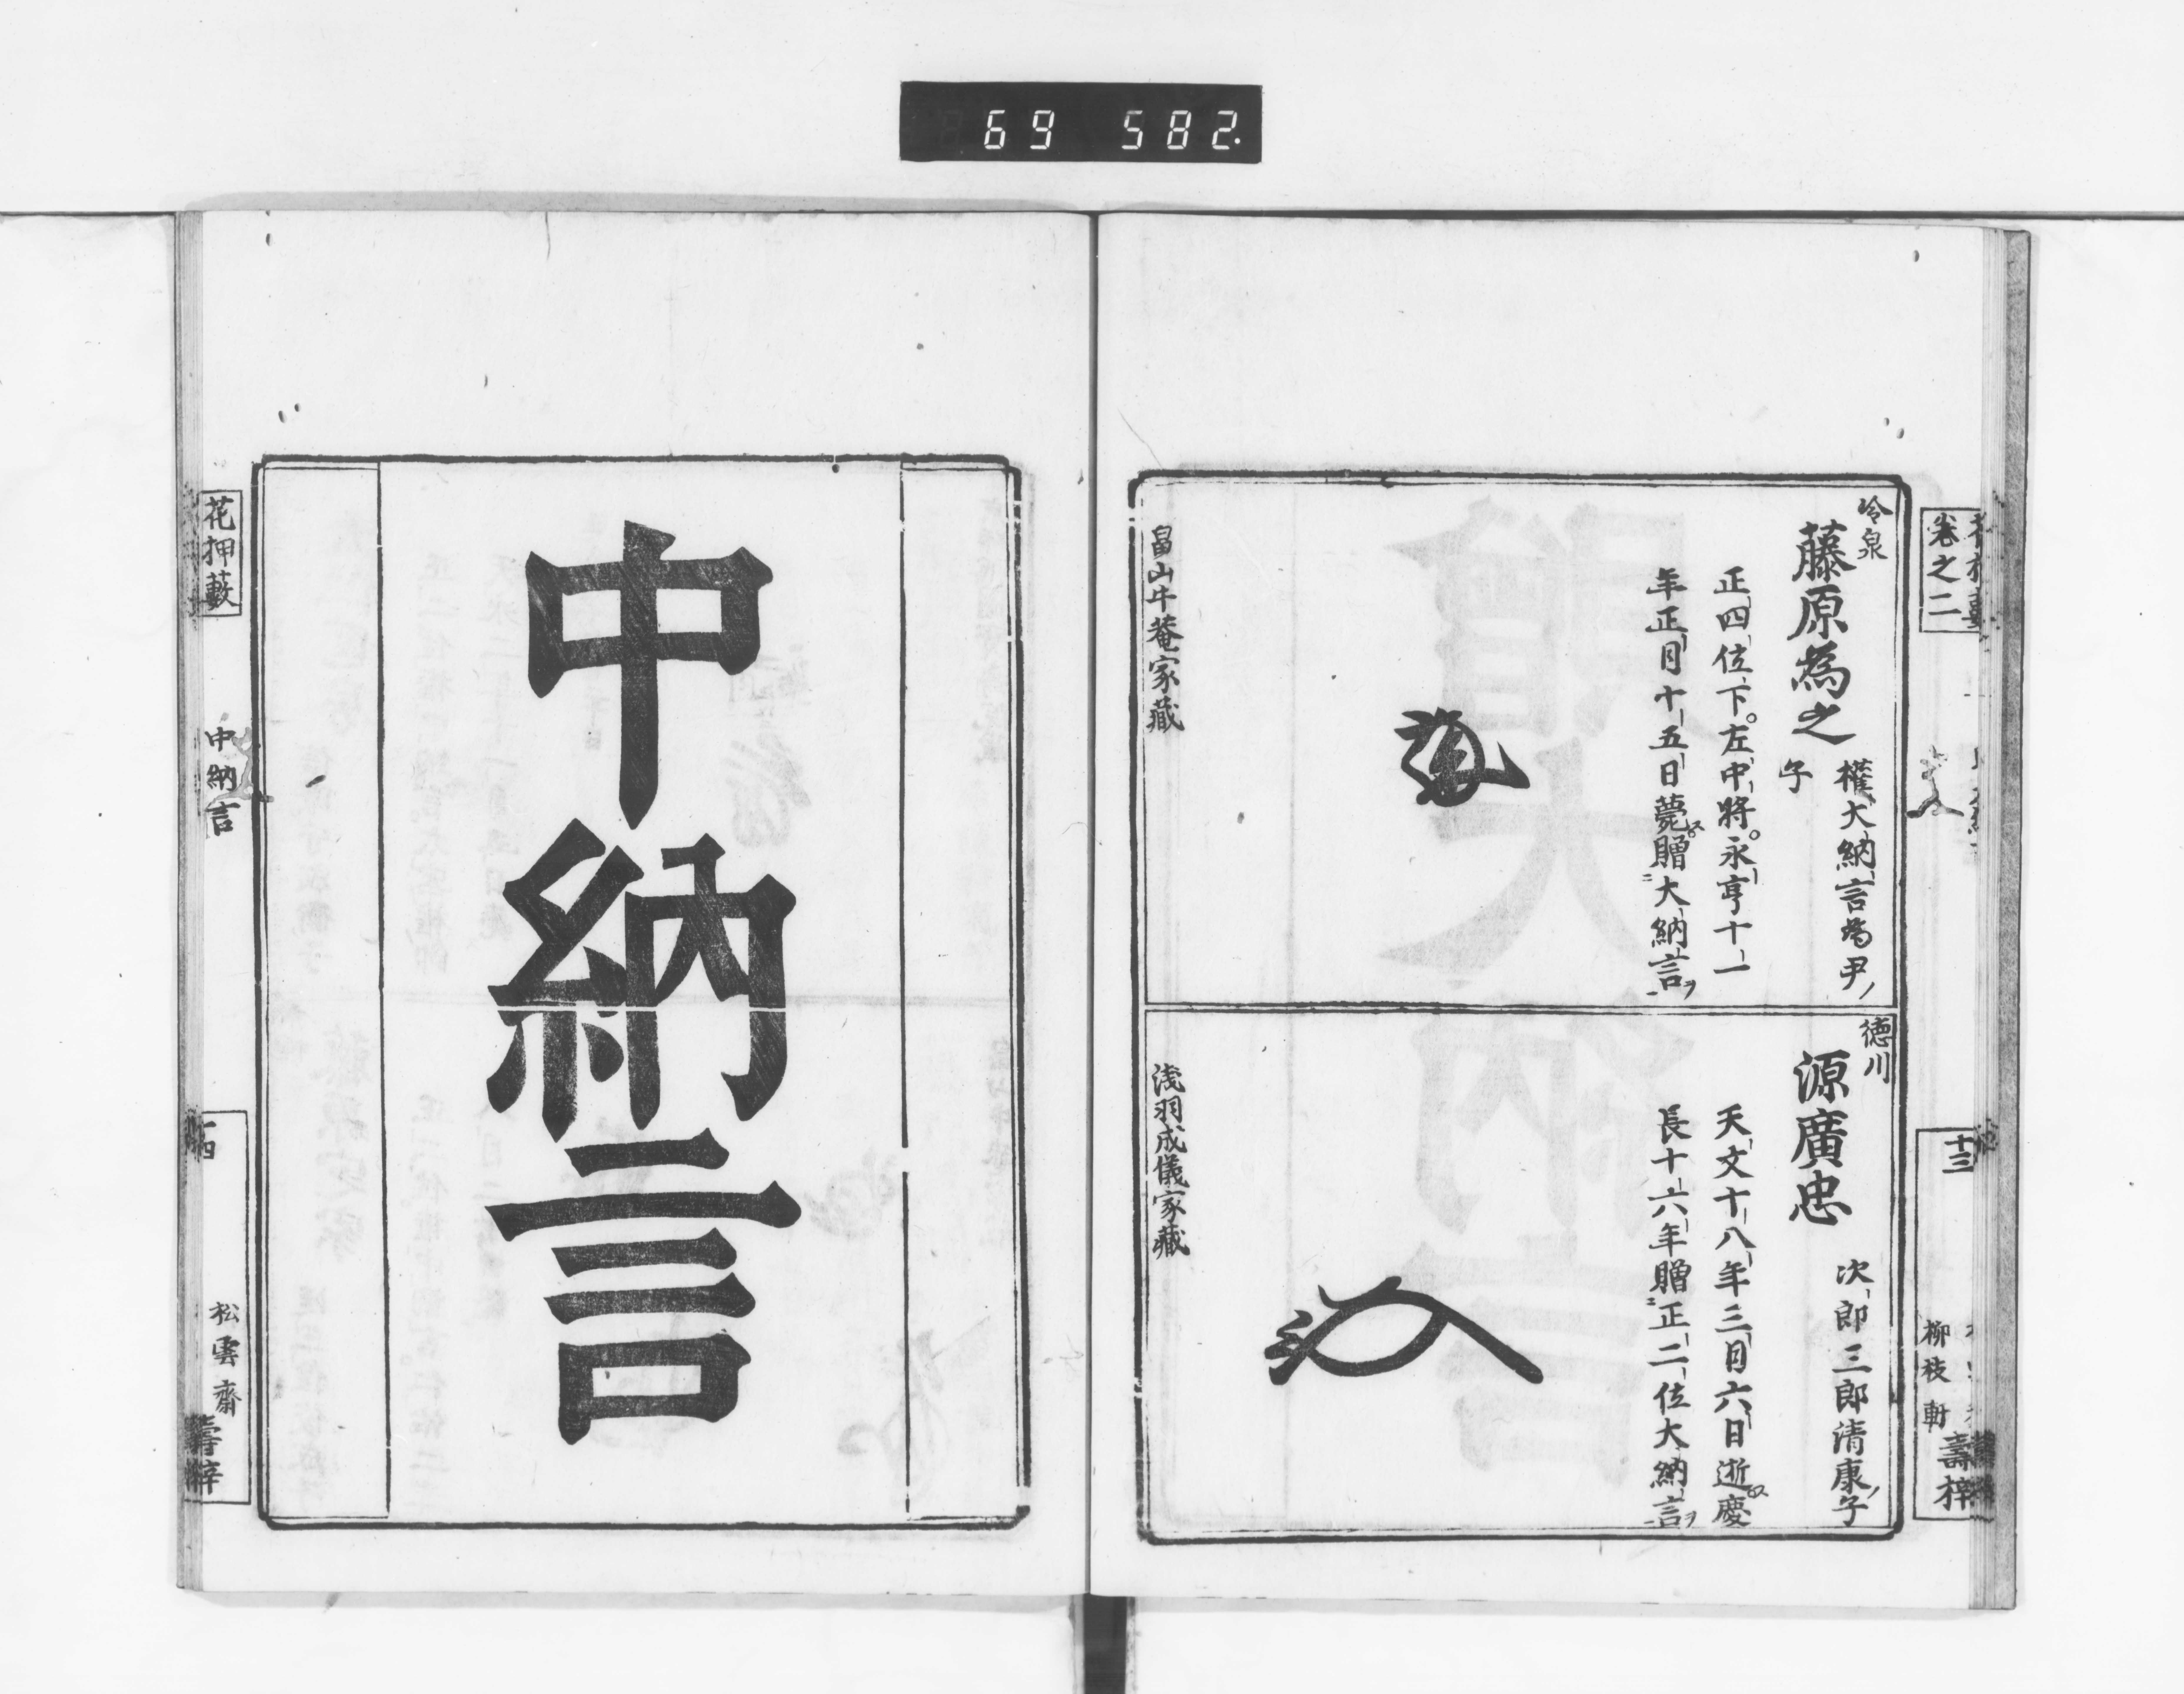 69 582.
卷之二
十三
柳枝軒
壽梓
冷泉
藤原為之
權大納言為尹ノ
子
正四位下。左中將。永亨十一
年正月十五日薨ス。贈ニ大納言ヲ
畠山牛菴家藏
德川
源廣忠
次郎三郎清康ノ子
天文十八年三月六日逝ス。慶
長十六年贈ニ正二位大納言ヲ
淺羽成儀家藏
中納言
花押藪
中納言
十四
松雲齋
壽梓